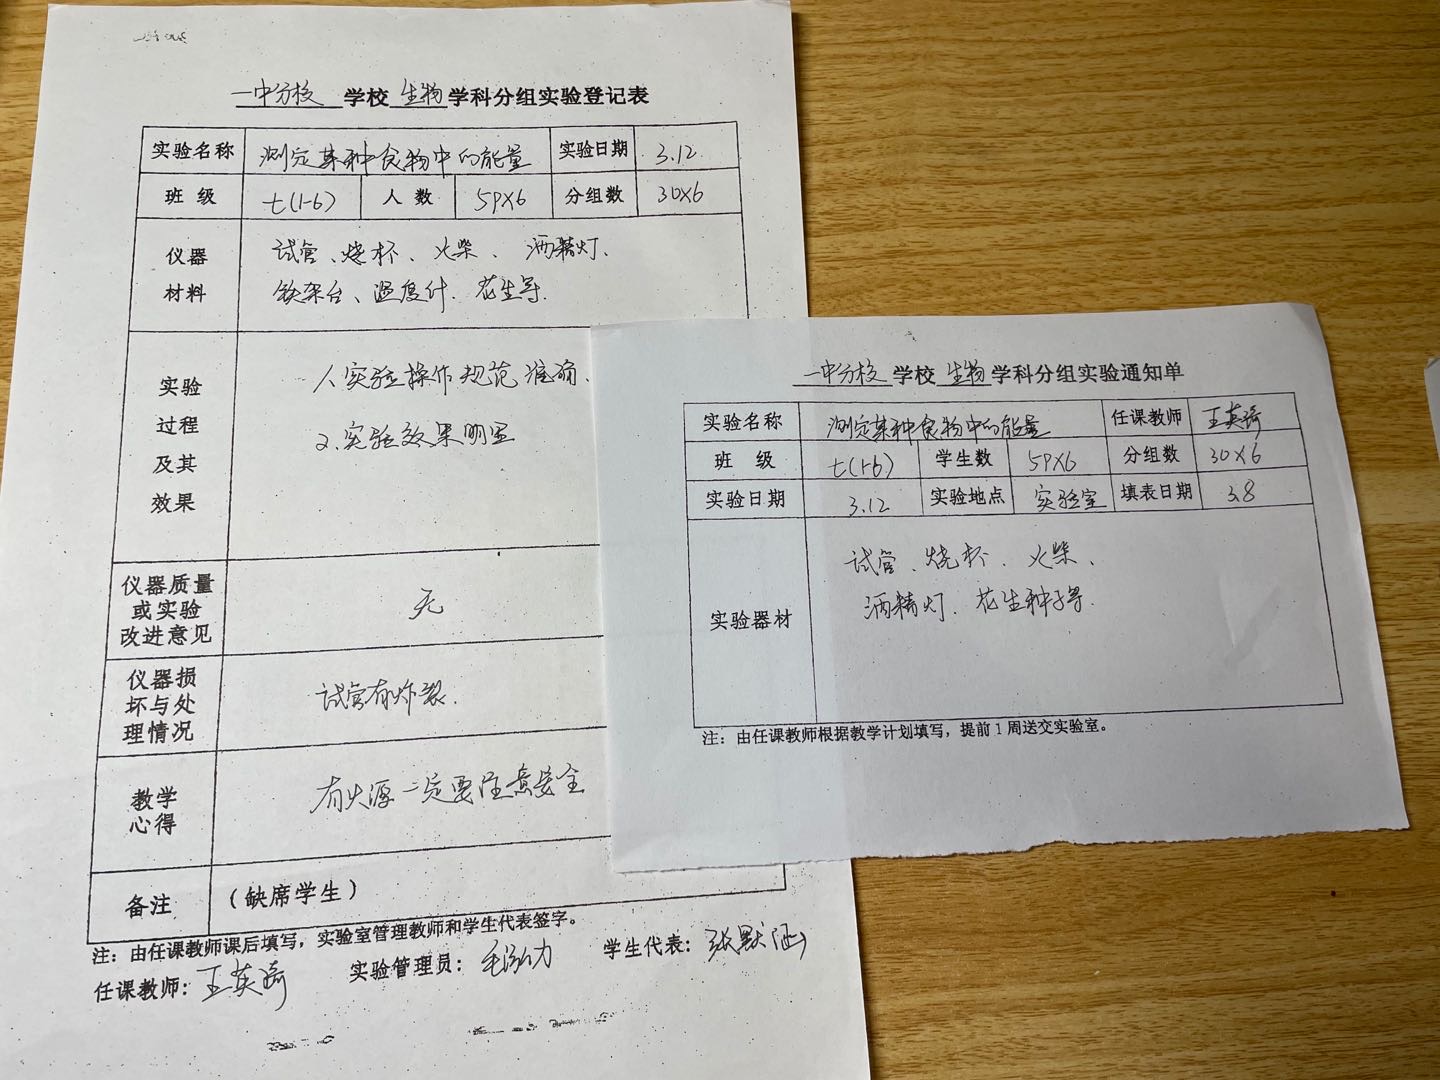 一中分校 学校 生物 学科分组实验登记表
实验名称 测定某种食物中的能量 实验日期 3.12
班 级 七(1-6) 人 数 59X6 分组数 30X6
仪器 材料 试管、烧杯、火柴、酒精灯、
铁架台、温度计、花生等.
实验 过程 及其 效果 1、实验操作规范准确、
2、实验效果明显
仪器质量 或实验 改进意见 无
仪器损 坏与处 理情况 试管有炸裂.
教学 心得 有火源一定要注意安全
备注 （缺席学生）
注：由任课教师课后填写，实验室管理教师和学生代表签字。
任课教师：王英 实验管理员：毛 学生代表：张默涵
一中分校 学校 生物 学科分组实验通知单
实验名称 测定某种食物中的能量 任课教师 王英
班 级 七(1-6) 学生数 59X6 分组数 30X6
实验日期 3.12 实验地点 实验室 填表日期 3.8
实验器材 试管、烧杯、火柴、
酒精灯、花生种子等.
注：由任课教师根据教学计划填写，提前1周送交实验室。